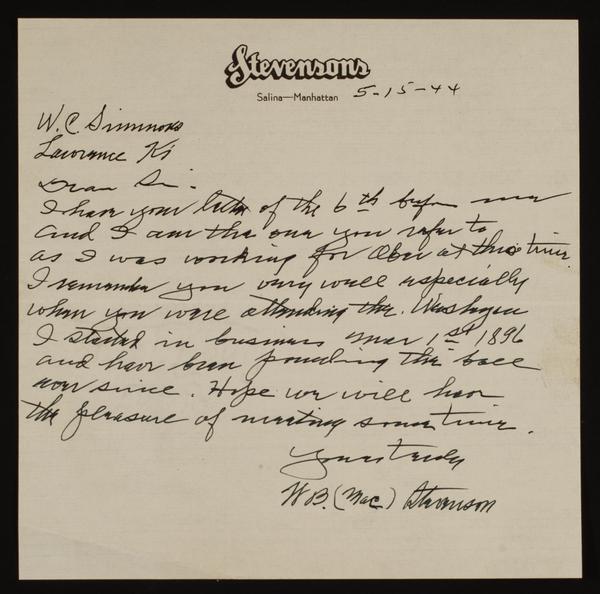 Stevensons
Salina—Manhattan 5-15-44
W. C. Simmons
Lawrence Ks
Dear Sir.
I have your letter of the 6th before me
and I am the one you refer to
as I was working for Ober at this time.
I remember you very well especially
when you were attending the.
I started in business Mar 1st 1896
and have been pounding the ball
ever since. Hope we will have
the pleasure of meeting some time.
Yours truly
W B. (Mac) Stevenson